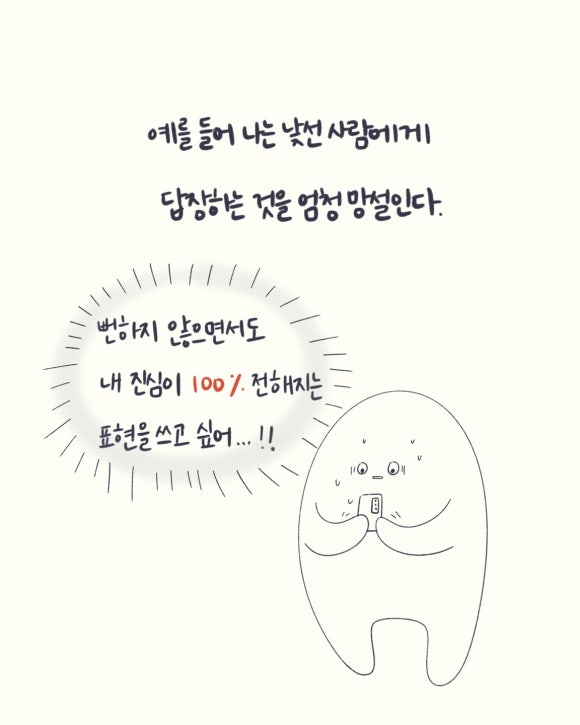 예를 들어 나는 낯선 사람에게
답장하는 것을 엄청 망설인다.
뻔하지 않으면서도
내 진심이 100% 전해지는
표현을 쓰고 싶어...!!